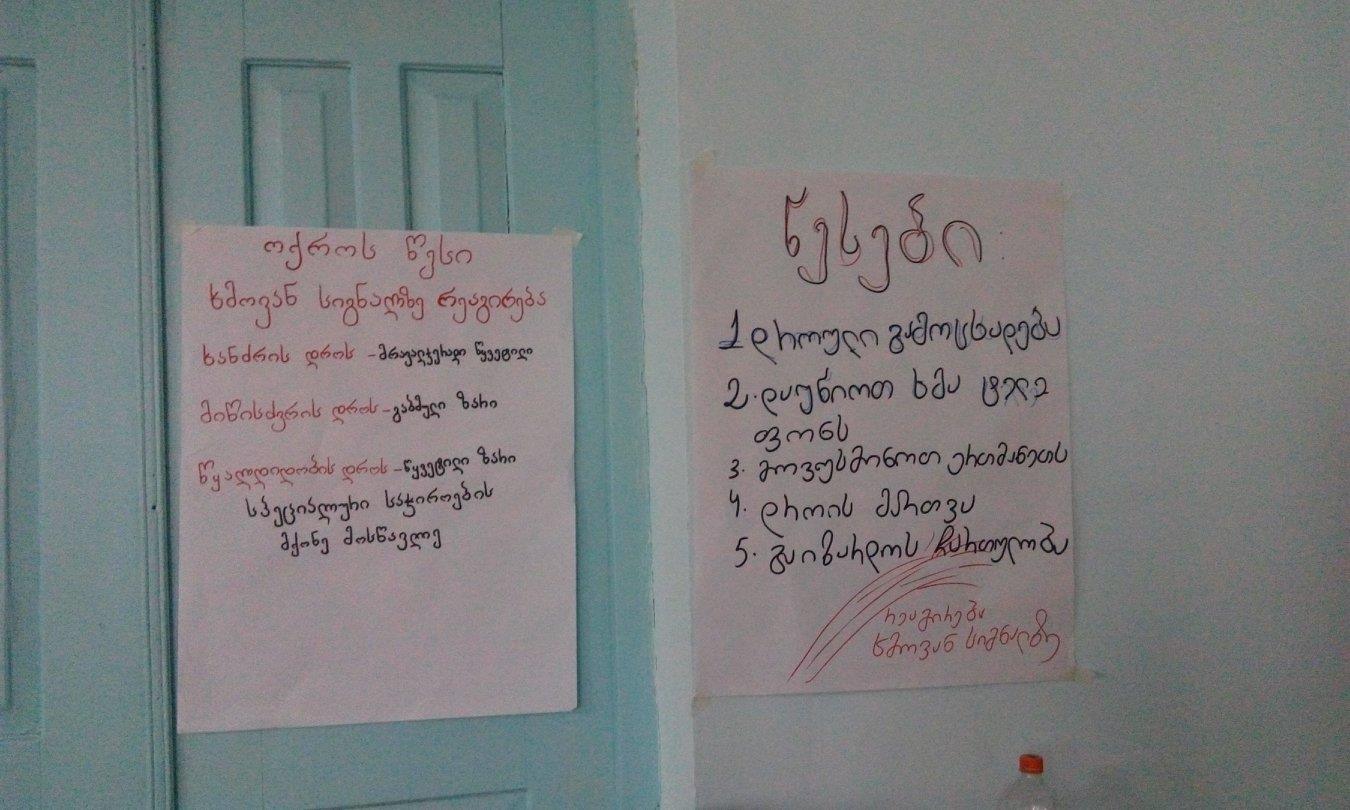 ოქროს წესი
ხმოვან სიგნალზე რეაგირება
ხანძრის დროს - მრავალჯერადი წყვეტილი
მიწისძვრის დროს - გაბმული ზარი
წყალდიდობის დროს - წყვეტილი ზარი
სპეციალური საჭიროების
მქონე მოსწავლე
წესები
1 დროული გამოცხადება
2. დაუწიოთ ხმა ტელე
ფონს
3. მოვუსმინოთ ერთმანეთს
4. დროის მართვა
5. გაიზარდოს ჩართულობა
რეაგირება
ხმოვან სიგნალზე